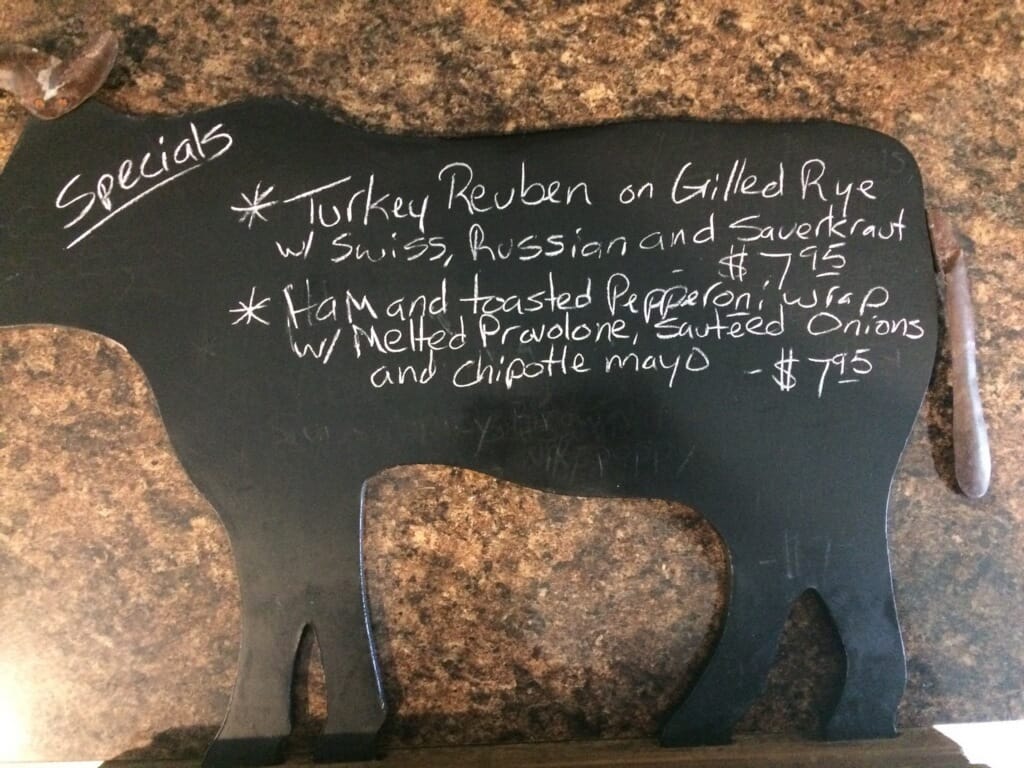 Specials
* Turkey Reuben on Grilled Rye
w/ Swiss, Russian and Sauerkraut
- $7.95
* Ham and toasted Pepperoni wrap
w/ Melted Provolone, Sauteed Onions
and chipotle mayo - $7.95